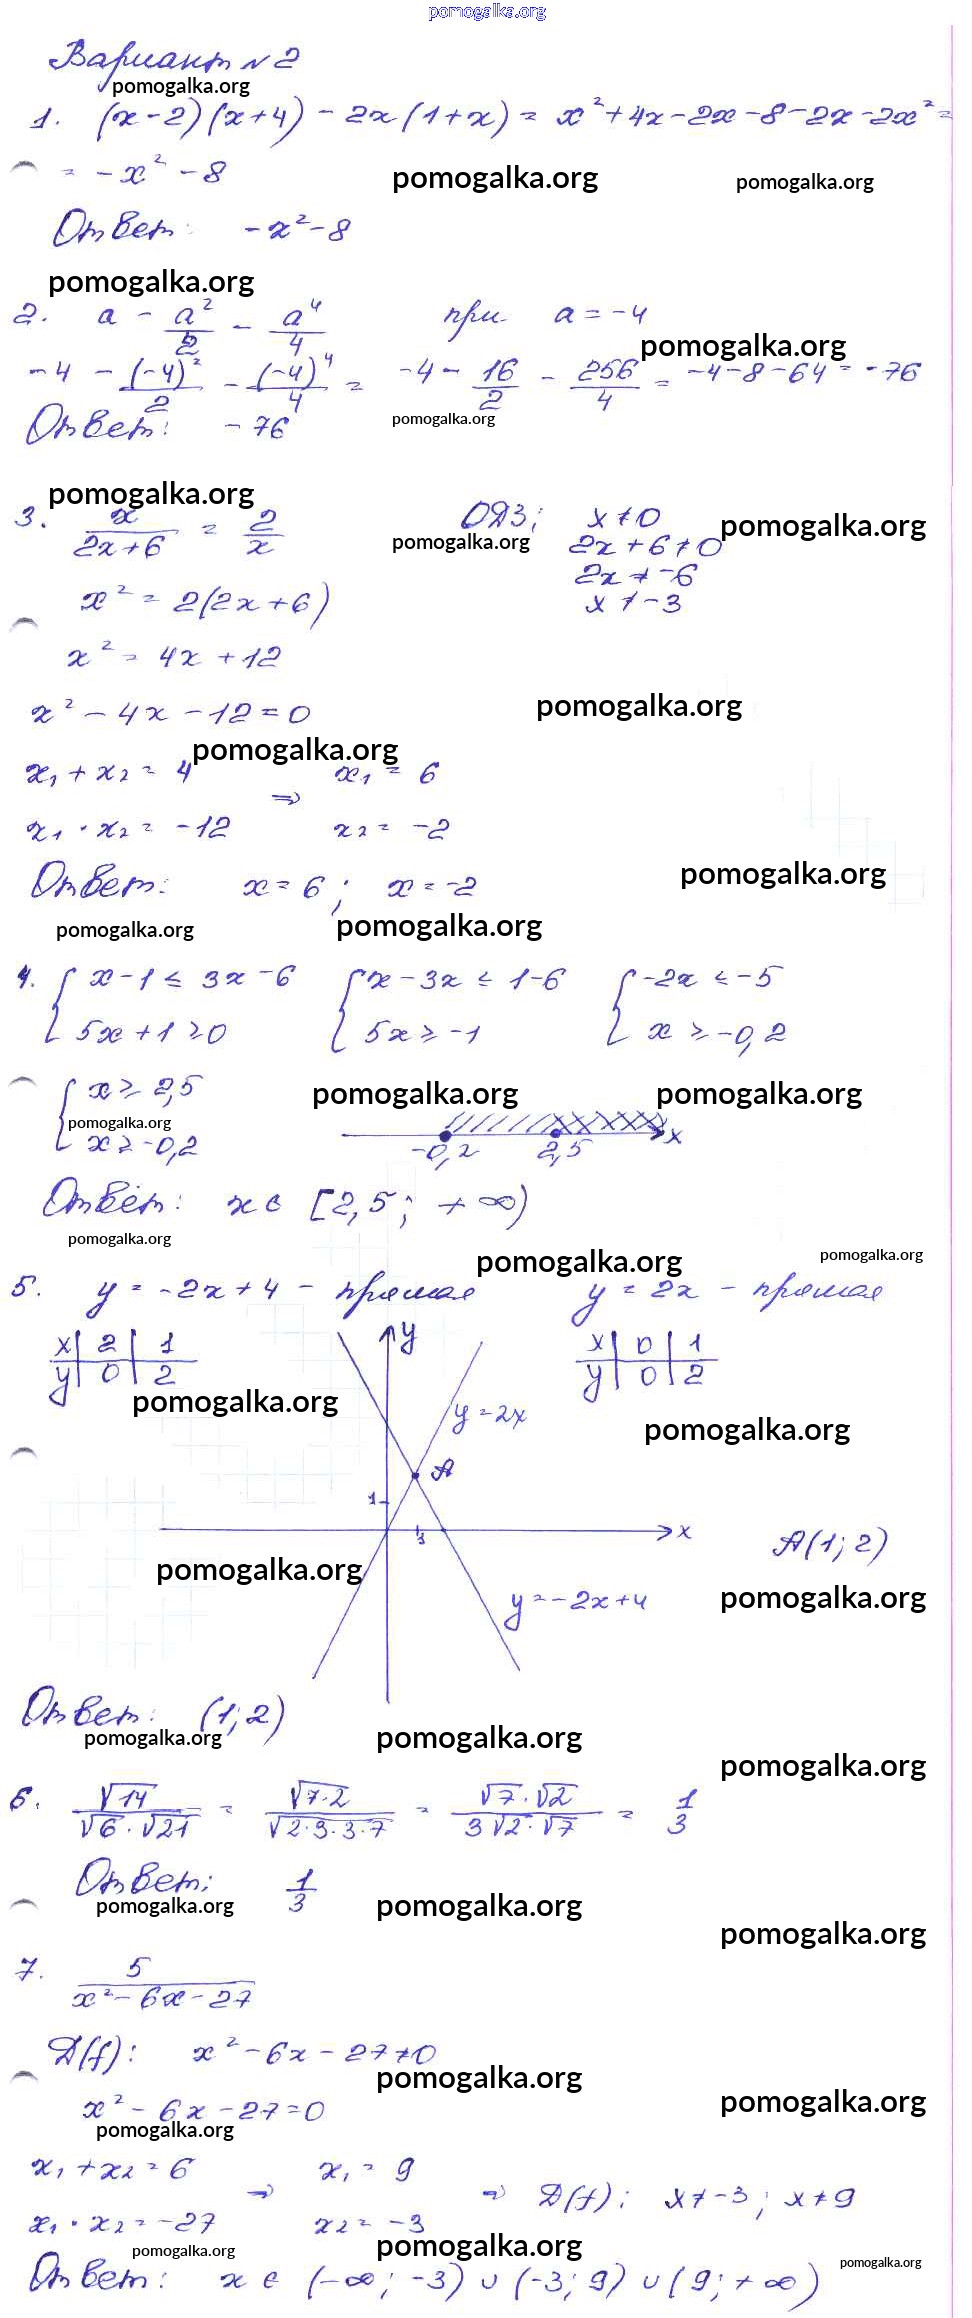 pomogalka.org
Вариант №2
pomogalka.org
1. (x-2)(x+4) - 2x(1+x) = x²+4x-2x-8-2x-2x² =
= -x² - 8
pomogalka.org pomogalka.org
Ответ: -x²-8
pomogalka.org
2. a - a²/2 - a⁴/4 при a = -4
pomogalka.org
-4 - (-4)²/2 - (-4)⁴/4 = -4 - 16/2 - 256/4 = -4-8-64 = -76
Ответ: -76
pomogalka.org
pomogalka.org
3. x/(2x+6) = 2/x ОДЗ: x≠0
pomogalka.org pomogalka.org
2x+6≠0
2x≠-6
x² = 2(2x+6) x≠-3
x² = 4x+12
x² - 4x - 12 = 0
pomogalka.org
pomogalka.org
x₁ + x₂ = 4 x₁ = 6
⇒
x₁ · x₂ = -12 x₂ = -2
Ответ: x = 6; x = -2
pomogalka.org
pomogalka.org pomogalka.org
4. { x-1 ≤ 3x-6 { x-3x ≤ 1-6 { -2x ≤ -5
5x+1 ≥ 0 5x ≥ -1 x ≥ -0,2
{ x ≥ 2,5
pomogalka.org pomogalka.org
pomogalka.org
x ≥ -0,2
-0,2 2,5 x
Ответ: x ∈ [2,5; +∞)
pomogalka.org
pomogalka.org pomogalka.org
5. y = -2x+4 - прямая y = 2x - прямая
x | 2 | 1 y x | 0 | 1
y | 0 | 2 y | 0 | 2
pomogalka.org
y=2x
pomogalka.org
A
1
1 x
A(1; 2)
pomogalka.org
y=-2x+4
pomogalka.org
Ответ: (1; 2)
pomogalka.org pomogalka.org
pomogalka.org
6. √14/(√6·√21) = √(7·2)/√(2·3·3·7) = (√7·√2)/(3√2·√7) = 1/3
Ответ: 1/3
pomogalka.org pomogalka.org
pomogalka.org
7. 5/(x²-6x-27)
D(f): x²-6x-27≠0
pomogalka.org
pomogalka.org
x²-6x-27=0
pomogalka.org
x₁+x₂=6 x₁=9
⇒ ⇒ D(f): x≠-3; x≠9
x₁·x₂=-27 x₂=-3
pomogalka.org pomogalka.org pomogalka.org
Ответ: x ∈ (-∞; -3) ∪ (-3; 9) ∪ (9; +∞)